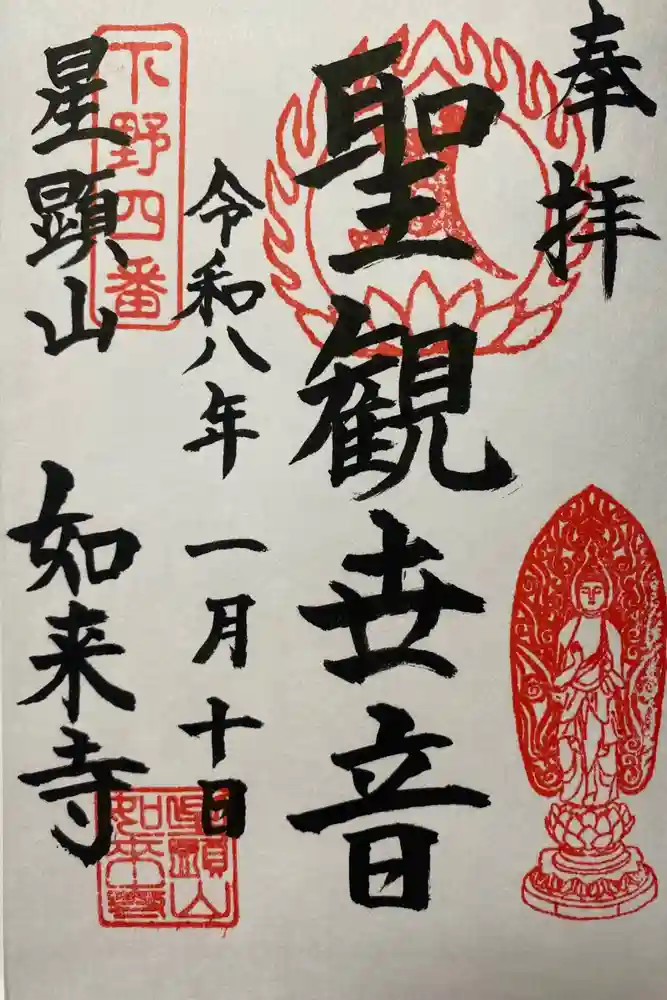 奉拝
聖観世音
令和八年一月十日
下野四番
星顕山 如来寺
星顕山
如来寺